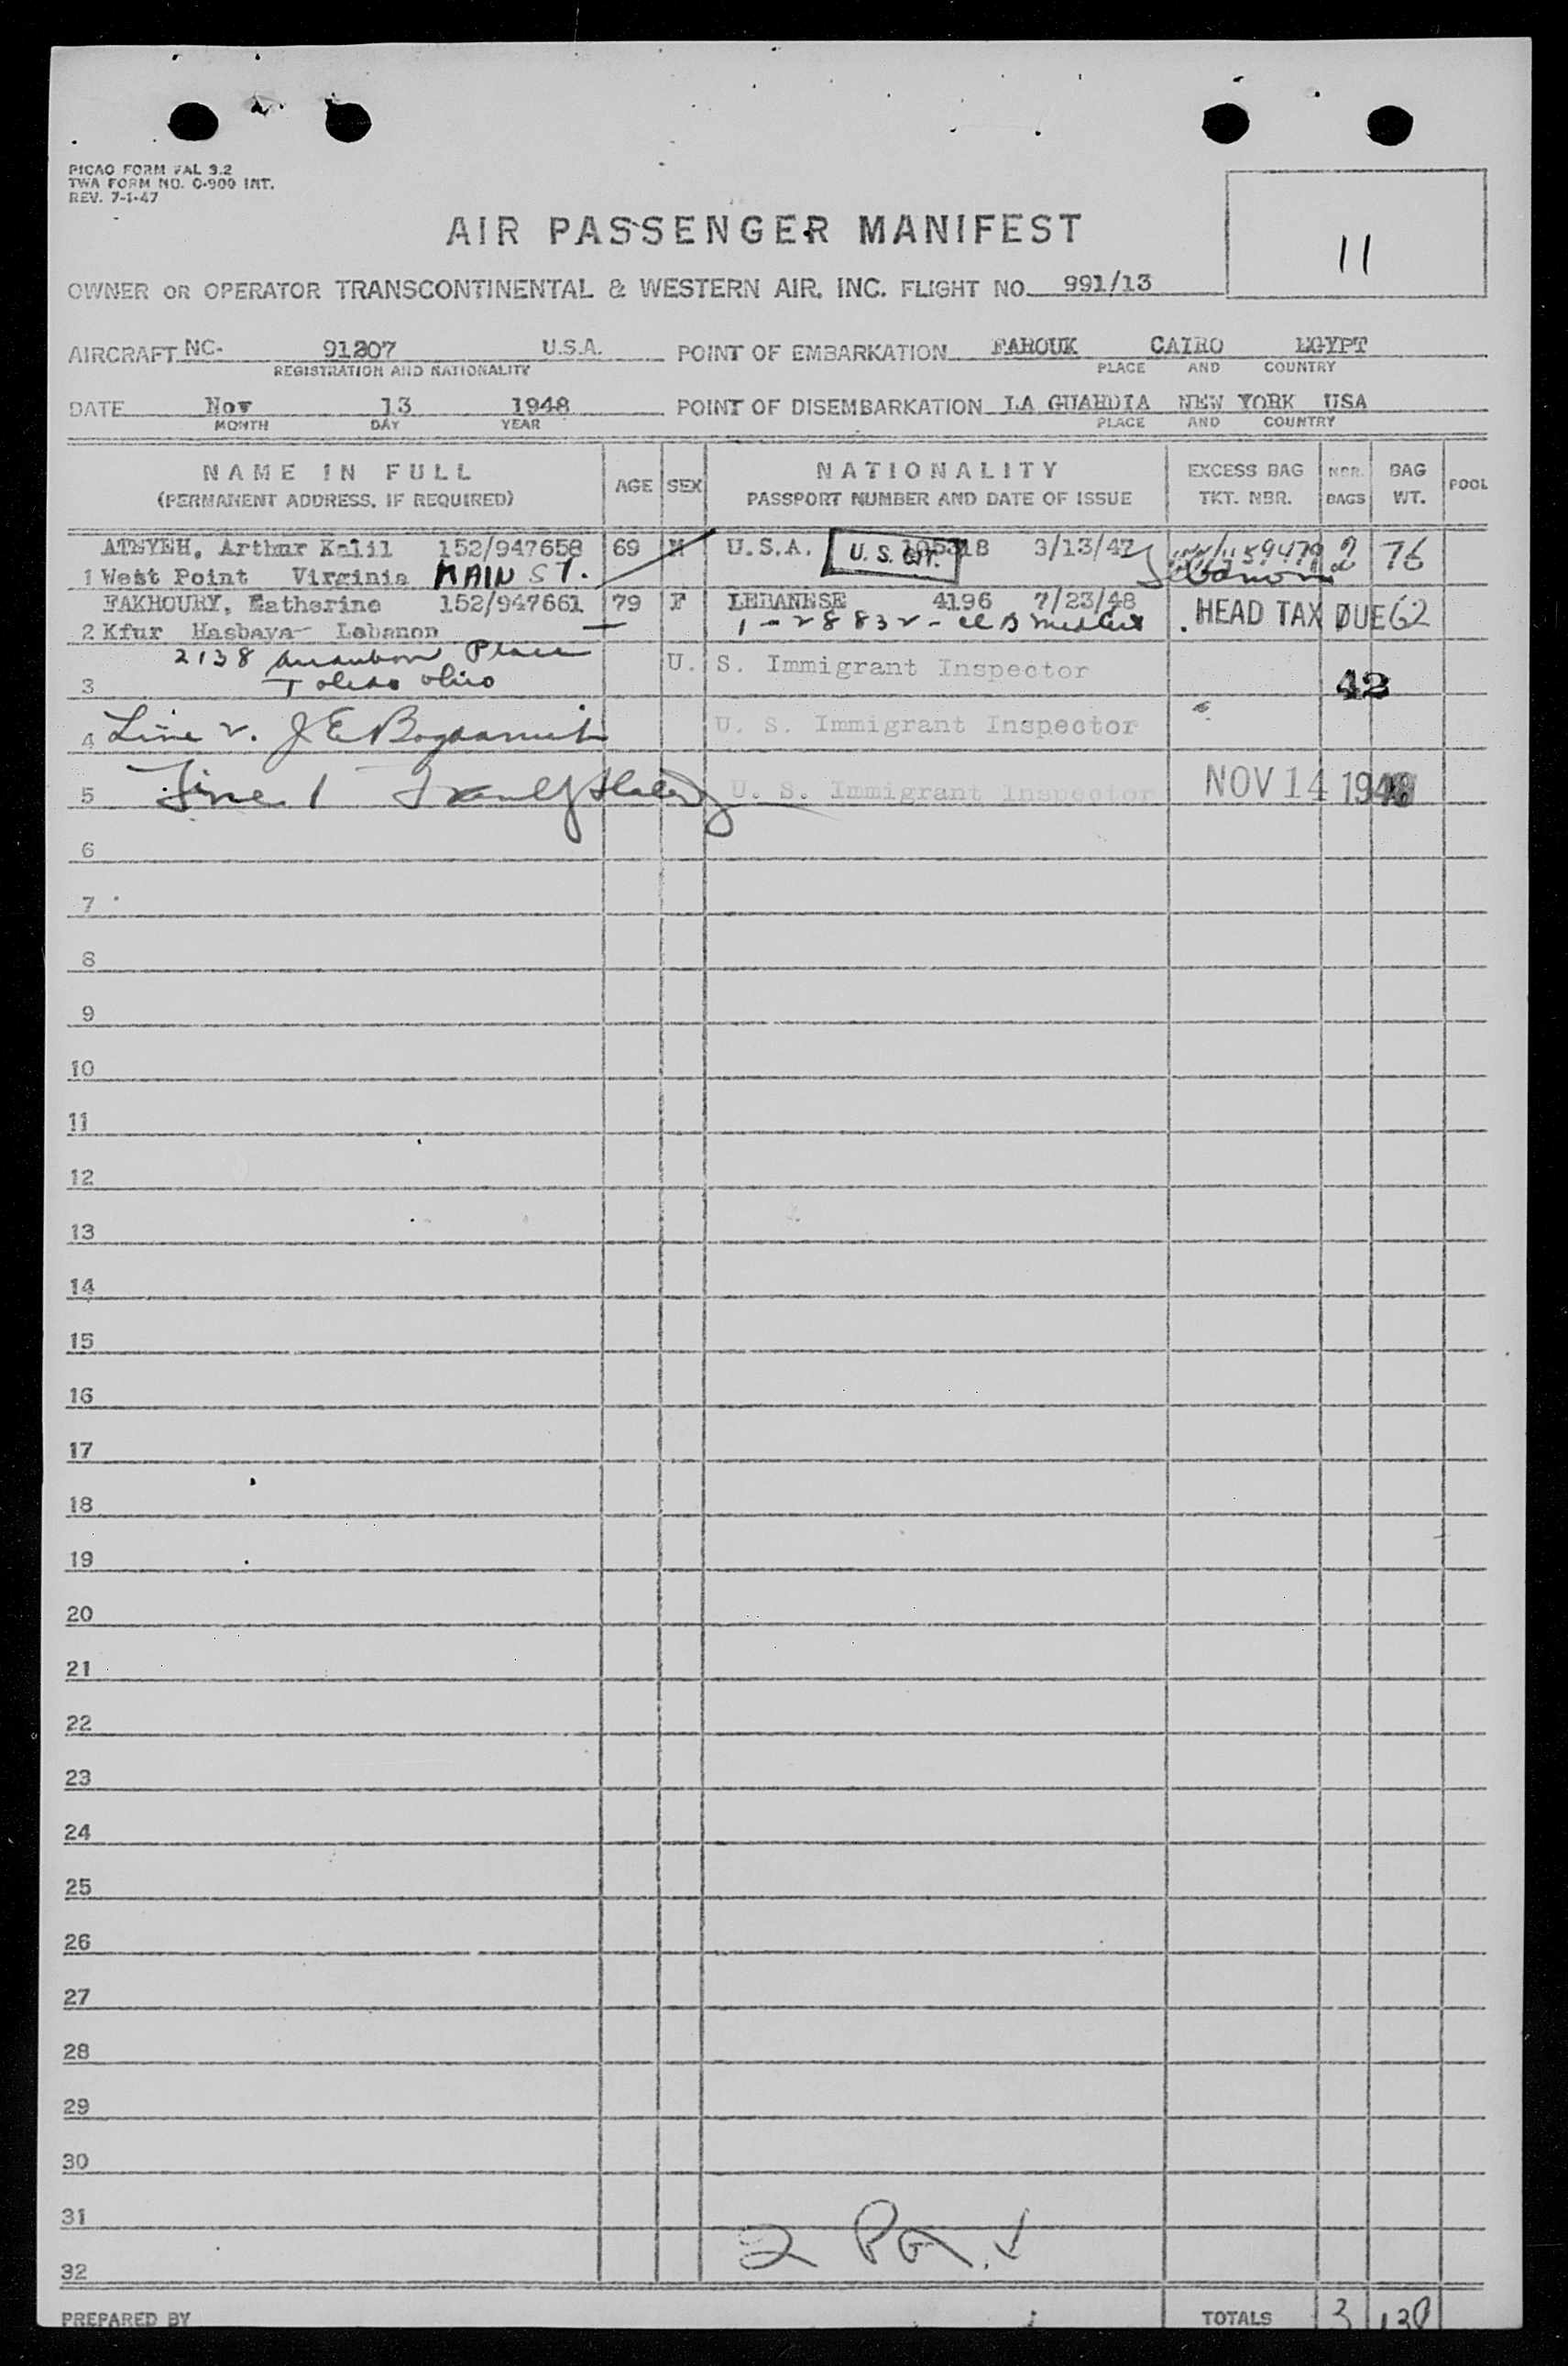 PICAO FORM FAL 3.2
TWA FORM NO. O-900 INT.
REV. 7-1-47
AIR PASSENGER MANIFEST
11
OWNER OR OPERATOR TRANSCONTINENTAL & WESTERN AIR, INC. FLIGHT NO. 991/13
AIRCRAFT NC- 91207 U.S.A. POINT OF EMBARKATION FAROUK CAIRO EGYPT
REGISTRATION AND NATIONALITY PLACE AND COUNTRY
DATE Nov 13 1948 POINT OF DISEMBARKATION LA GUARDIA NEW YORK USA
MONTH DAY YEAR PLACE AND COUNTRY
NAME IN FULL AGE SEX NATIONALITY EXCESS BAG NBR. BAG POOL
(PERMANENT ADDRESS, IF REQUIRED) PASSPORT NUMBER AND DATE OF ISSUE TKT. NBR. BAGS WT.
ATEYEH, Arthur Kalil 152/947658 69 M U.S.A. U.S. CIT. 105318 3/13/47 2 76
1 West Point Virginia MAIN ST. Lebanon
FAKHOURY, Katherine 152/947661 79 F LEBANESE 4196 7/23/48 HEAD TAX DUE 62
2 Kfur Hasbaya- Lebanon
2138 Place U. S. Immigrant Inspector
3 Toledo Ohio 42
4 Line 2. J E U. S. Immigrant Inspector
5 Line 1 U. S. Immigrant Inspector NOV 14 194
6
7
8
9
10
11
12
13
14
15
16
17
18
19
20
21
22
23
24
25
26
27
28
29
30
31
2
32
PREPARED BY TOTALS 3 138